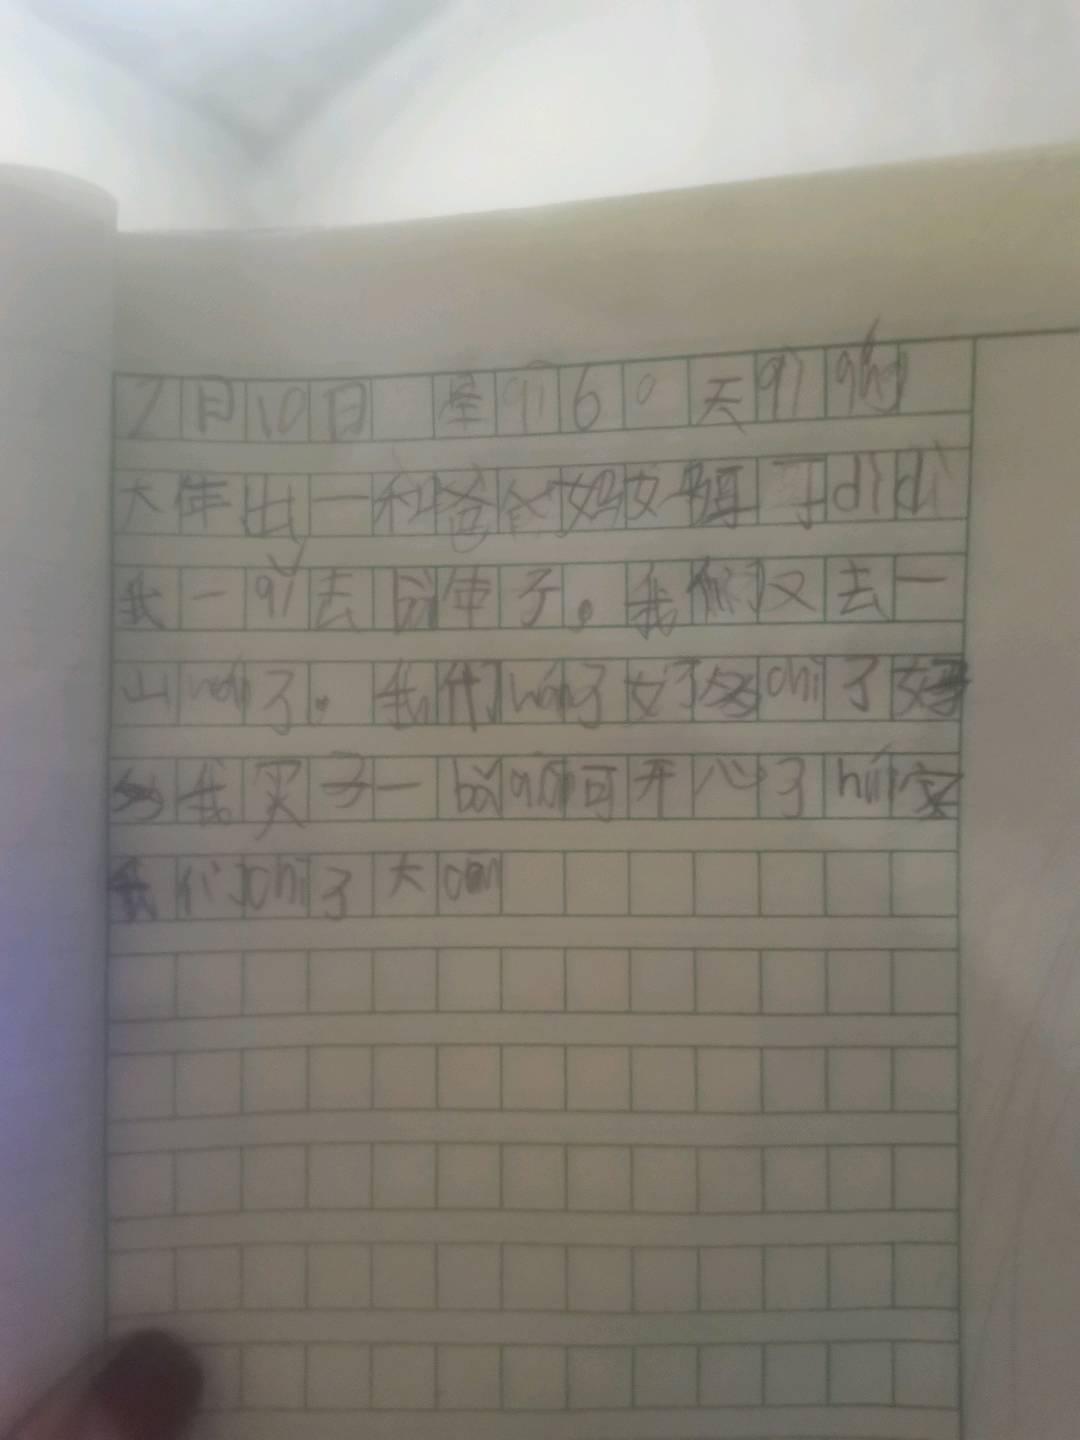 2月10日 星qī6。天qì qíng
大年出一和爸爸妈妈 dìdi
我一qǐ去 车了。我们又去一
山wán了。我们wán了好多chī了好
多我买了一bāo 可开心了huí家
我们chī了大cān